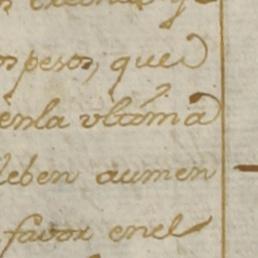 os pesos, que
ènla vltima
deben aumen
favor enel